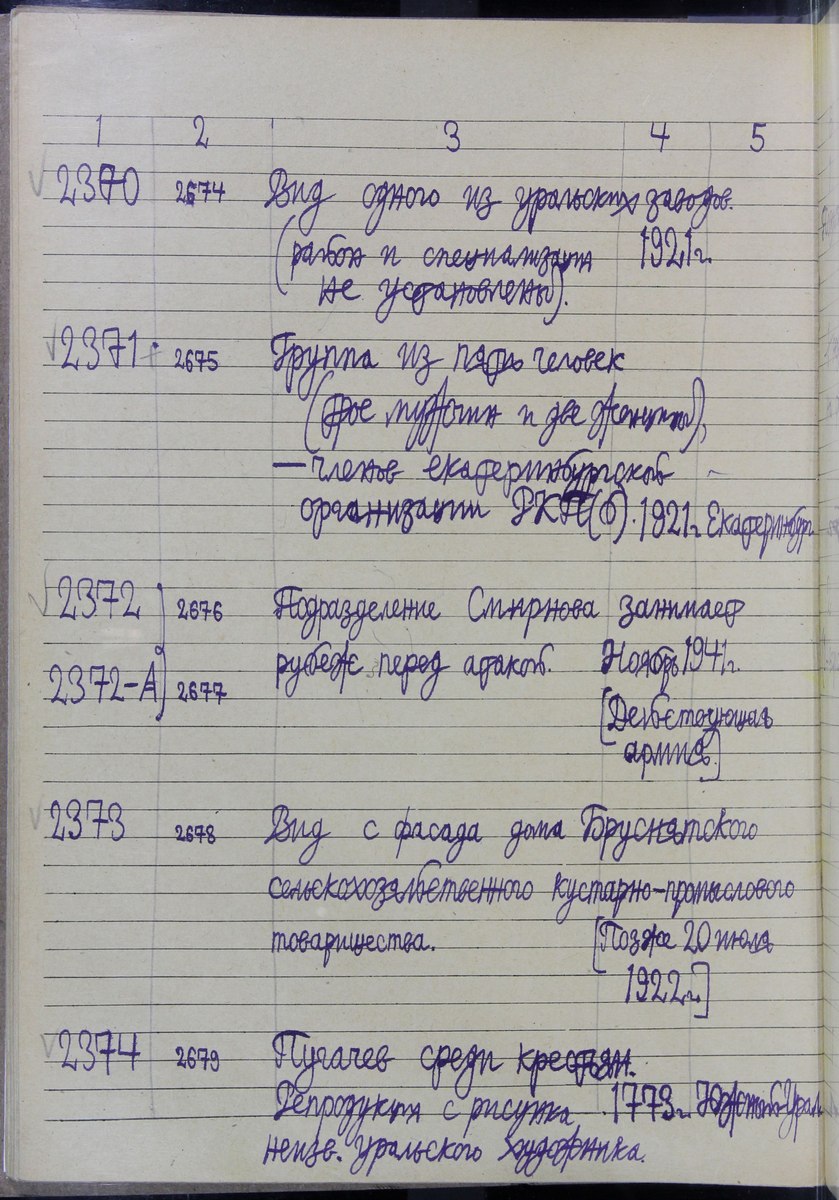 1 2 3 4 5
2370 2674 Вид одного из уральских заводов.
(район и специализация 1921 г.
не установлены).
2371 2675 Группа из пяти человек
(трое мужчин и две женщины),
— членов екатеринбургской
организации РКП(б). 1921 г. Екатеринбург
2372 2676 Подразделение Смирнова занимает
рубеж перед атакой. Ноябрь 1941 г.
2372-А 2677
[Действующая
армия.]
2373 2678 Вид с фасада дома Бруснятского
сельскохозяйственного кустарно-промыслового
товарищества. [Позже 20 июля
1922 г.]
2374 2679 Пугачев среди крестьян.
Репродукция с рисунка 1773 г. Южный Урал
неизв. уральского художника.